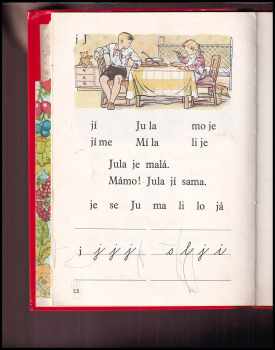 j J
jí Ju la mo je
jí me Mí la li je
Jula je malá.
Mámo! Jula jí sama.
je se Ju ma li lo já
i j j j j s l j i